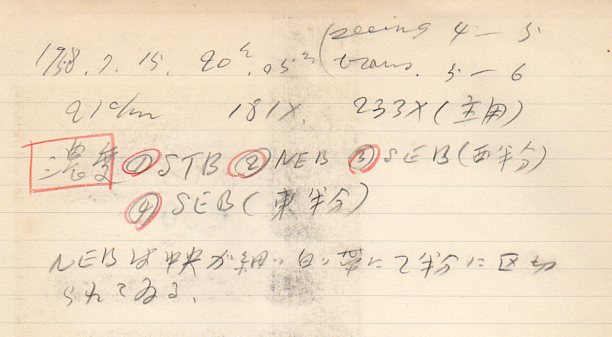 1958. 7. 15. 20h. 05m (seeing 4-5
trans. 5-6
21cm 181X. 233X (主用)
濃度 ① STB ② NEB ③ SEB (西半分)
④ SEB (東半分)
NEBは中央が細い白い帯にて半分に区切
られてゐる.